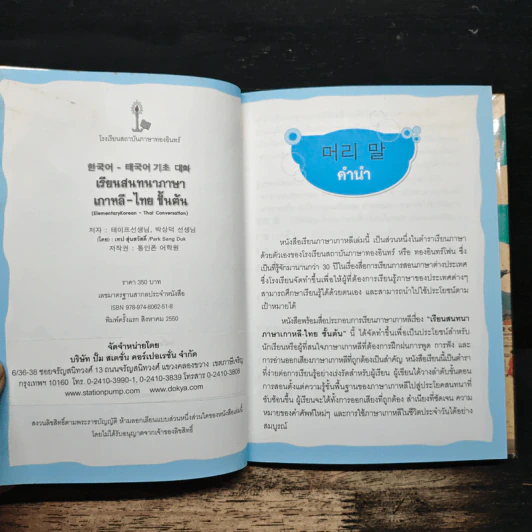 โรงเรียนสถาบันภาษาทองอินทร์
한국어 - 태국어 기초 대화
เรียนสนทนาภาษา
เกาหลี-ไทย ชั้นต้น
(ElementaryKorean - Thai Conversation)
저자 : 테이프선생님, 박상덕 선생님
(โดย) : เทป สุ่นสวัสดิ์ /Park Sang Duk
저작권 : 통인폰 어학원
ราคา 350 บาท
เลขมาตรฐานสากลประจำหนังสือ
ISBN 978-974-6062-61-8
พิมพ์ครั้งแรก สิงหาคม 2550
จัดจำหน่ายโดย
บริษัท ปั๊ม สเตชั่น คอร์เปอเรชั่น จำกัด
6/36-38 ซอยจรัญสนิทวงศ์ 13 ถนนจรัญสนิทวงศ์ แขวงคลองขวาง เขตภาษีเจริญ
กรุงเทพฯ 10160 โทร. 0-2410-3990-1, 0-2410-3839 โทรสาร 0-2410-3808
www.stationpump.com / www.dokya.com
สงวนลิขสิทธิ์ตามพระราชบัญญัติ ห้ามลอกเลียนแบบส่วนหนึ่งส่วนใดของหนังสือเล่มนี้
โดยไม่ได้รับอนุญาตจากเจ้าของลิขสิทธิ์
머리 말
คำนำ
หนังสือเรียนภาษาเกาหลีเล่มนี้ เป็นส่วนหนึ่งในตำราเรียนภาษา
ด้วยตัวเองของโรงเรียนสถาบันภาษาทองอินทร์ หรือ ทองอินทร์โฟน ซึ่ง
เป็นที่รู้จักมานานกว่า 30 ปีในเรื่องสื่อการเรียนการสอนภาษาต่างประเทศ
ซึ่งโรงเรียนจัดทำขึ้นเพื่อให้ผู้ที่ต้องการเรียนรู้ภาษาของประเทศต่างๆ
สามารถศึกษาเรียนรู้ได้ด้วยตนเอง และสามารถนำไปใช้ประโยชน์ตาม
เป้าหมายได้
หนังสือพร้อมสื่อประกอบการเรียนภาษาเกาหลีเรื่อง "เรียนสนทนา
ภาษาเกาหลี-ไทย ชั้นต้น" นี้ ได้จัดทำขึ้นเพื่อเป็นประโยชน์สำหรับ
นักเรียนหรือผู้ที่สนใจภาษาเกาหลีที่ต้องการฝึกฝนการพูด การฟัง และ
การอ่านออกเสียงภาษาเกาหลีที่ถูกต้องเป็นสำคัญ หนังสือเรียนนี้เป็นตำรา
ที่ง่ายต่อการเรียนรู้อย่างเร่งรัดสำหรับผู้เรียน ผู้เขียนได้วางลำดับขั้นตอน
การสอนตั้งแต่ความรู้ขั้นพื้นฐานของภาษาเกาหลีไปสู่ประโยคสนทนาที่
ซับซ้อนขึ้น ผู้เรียนจะได้ทั้งการออกเสียงที่ถูกต้อง สำเนียงที่ชัดเจน ความ
หมายของคำศัพท์ใหม่ๆ และการใช้ภาษาเกาหลีในชีวิตประจำวันได้อย่าง
สมบูรณ์